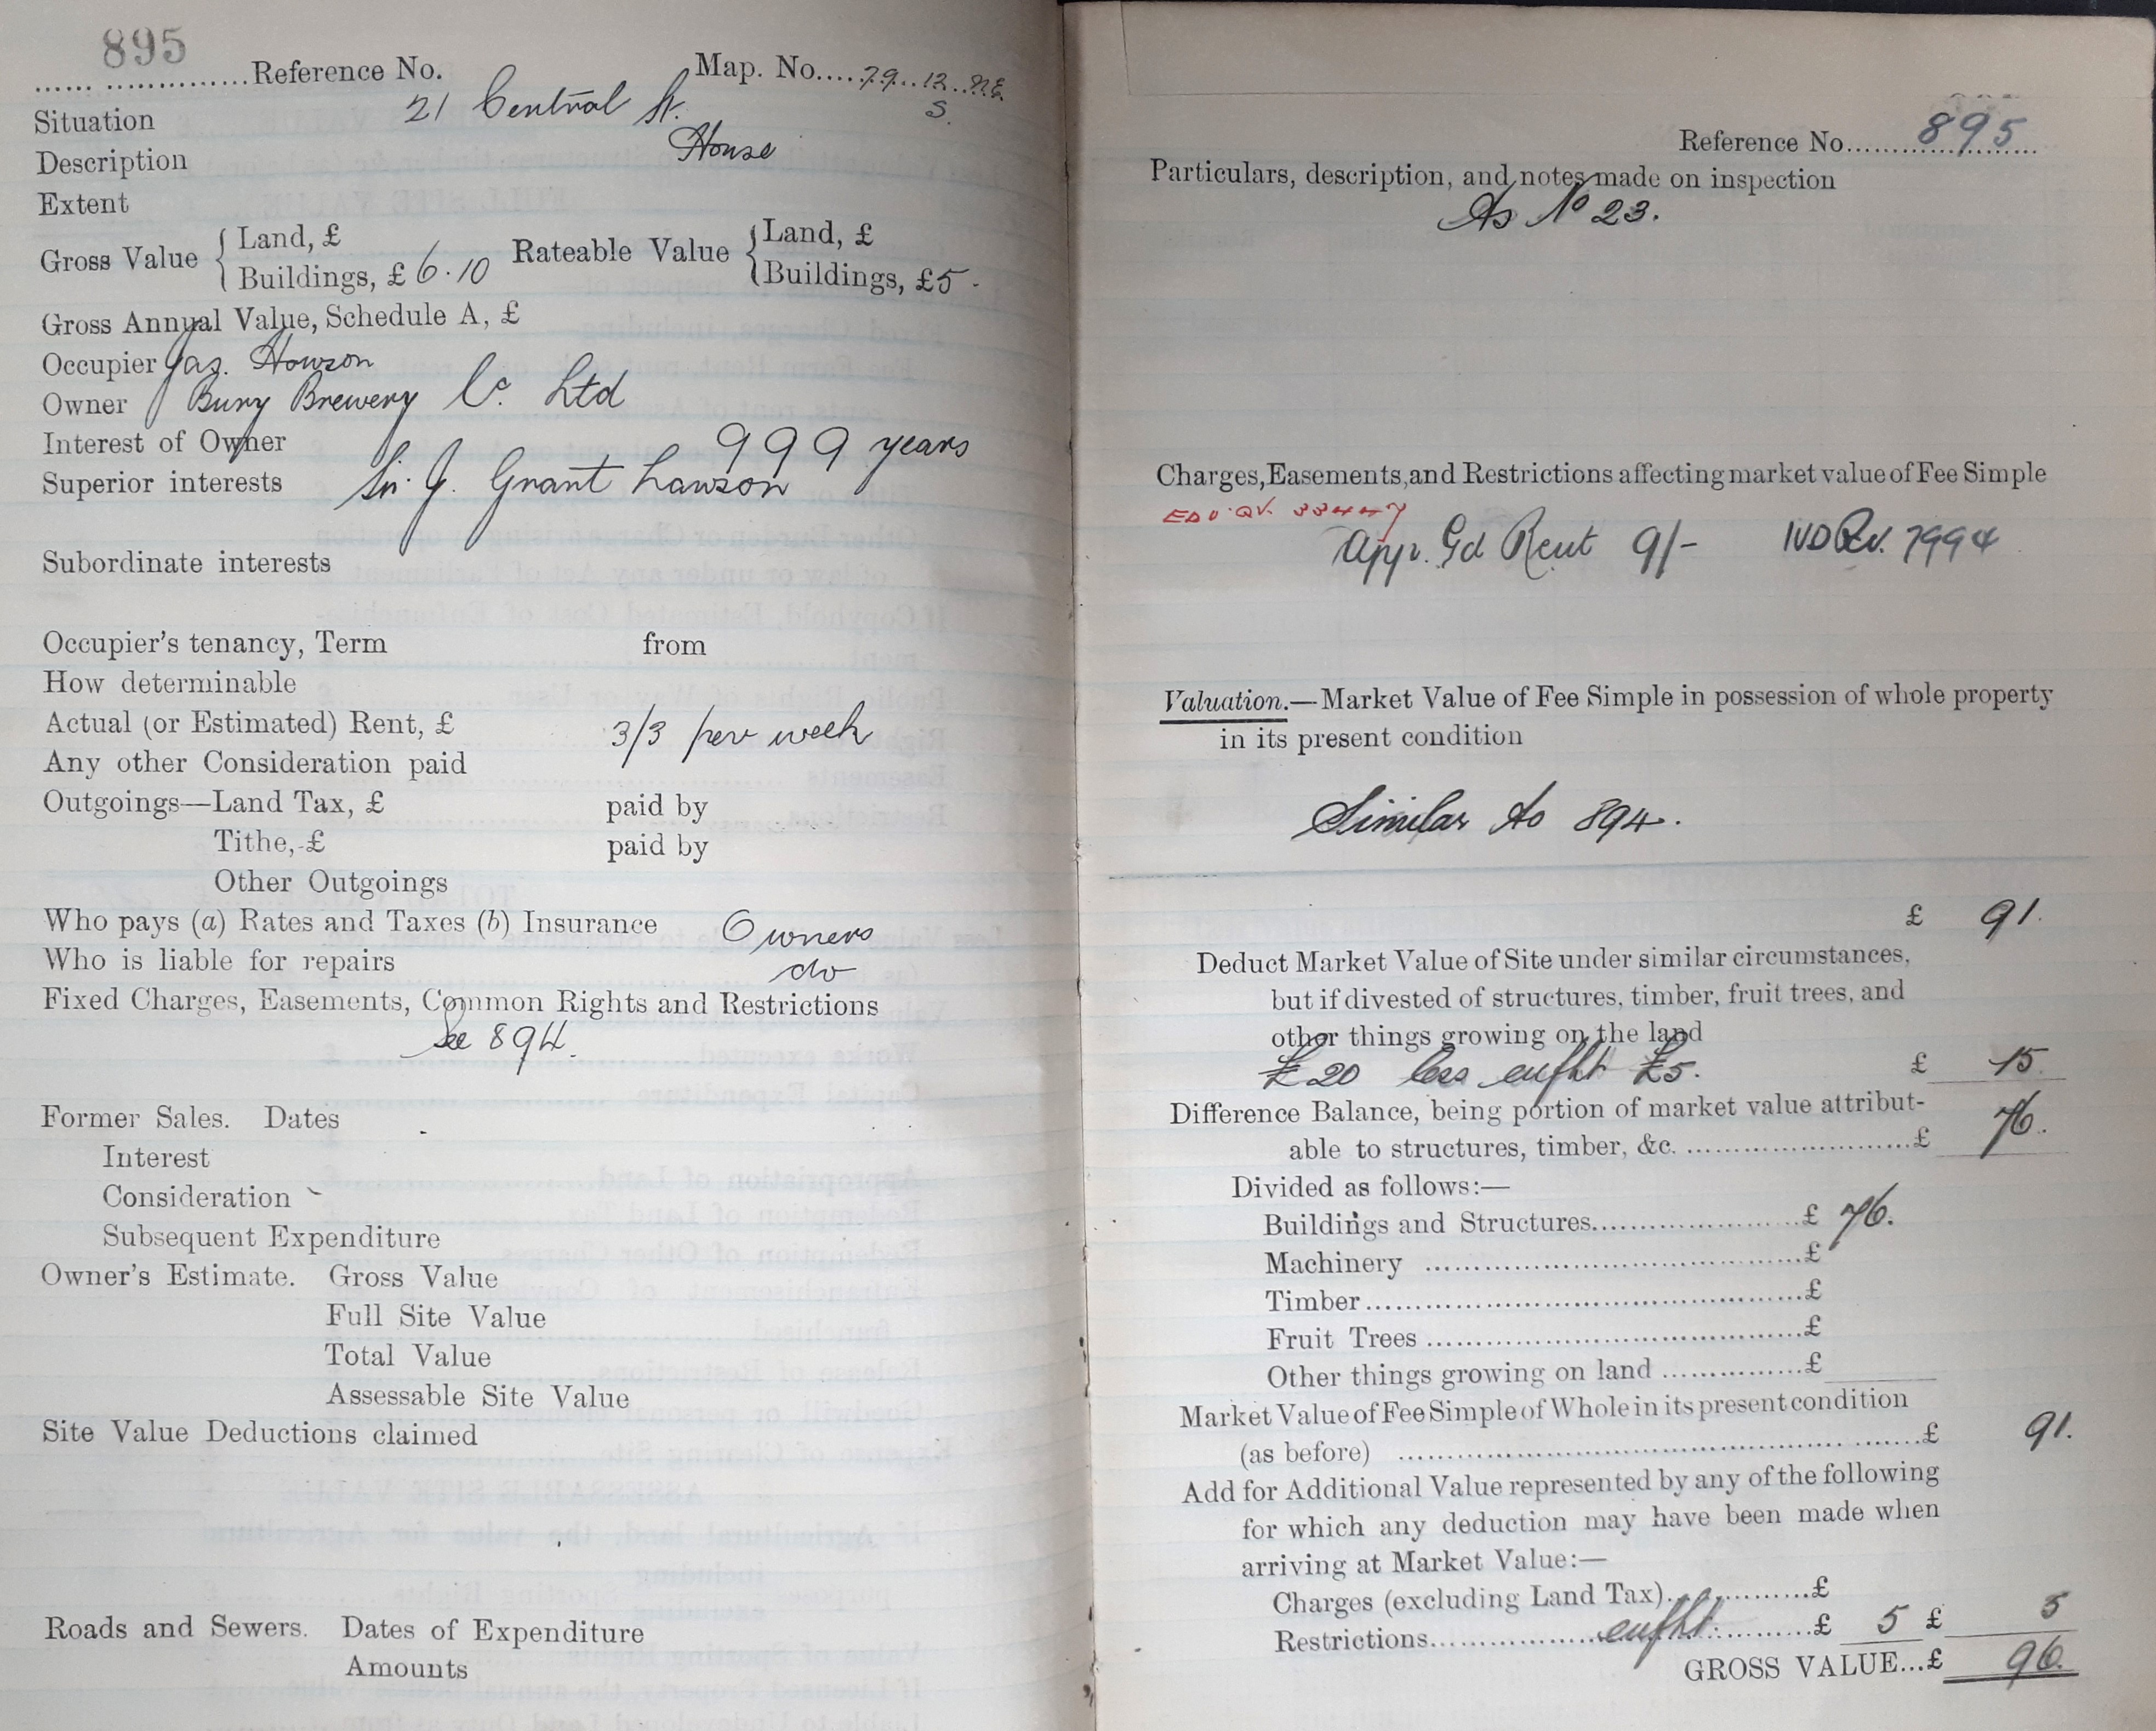 895
...... ...............Reference No. Map. No.....79..12..N.E.
S.
Situation 21 Central St.
Description House
Extent
Gross Value { Land, £ Rateable Value { Land, £
Buildings, £ 6.10 Buildings, £5.
Gross Annual Value, Schedule A, £
Occupier Jas. Howson
Owner Bury Brewery Co. Ltd
Interest of Owner 999 years
Superior interests Sir J. Grant Lawson
Subordinate interests
Occupier's tenancy, Term from
How determinable
Actual (or Estimated) Rent, £ 3/3 per week
Any other Consideration paid
Outgoings—Land Tax, £ paid by
Tithe, £ paid by
Other Outgoings
Who pays (a) Rates and Taxes (b) Insurance Owners
Who is liable for repairs do
Fixed Charges, Easements, Common Rights and Restrictions
See 894.
Former Sales. Dates
Interest
Consideration
Subsequent Expenditure
Owner's Estimate. Gross Value
Full Site Value
Total Value
Assessable Site Value
Site Value Deductions claimed
Roads and Sewers. Dates of Expenditure
Amounts
Reference No. 895
Particulars, description, and notes made on inspection
As No 23.
Charges, Easements, and Restrictions affecting market value of Fee Simple
App. Gd Rent 9/- IVD 7994
Valuation.—Market Value of Fee Simple in possession of whole property
in its present condition
Similar to 894.
£ 91.
Deduct Market Value of Site under similar circumstances,
but if divested of structures, timber, fruit trees, and
other things growing on the land
£20 less enfht £5. £ 15.
Difference Balance, being portion of market value attribut-
able to structures, timber, &c. £ 76.
Divided as follows:—
Buildings and Structures £ 76.
Machinery £
Timber £
Fruit Trees £
Other things growing on land £
Market Value of Fee Simple of Whole in its present condition
(as before) £ 91.
Add for Additional Value represented by any of the following
for which any deduction may have been made when
arriving at Market Value:—
Charges (excluding Land Tax) £
Restrictions enfht. £ 5 £ 5
GROSS VALUE...£ 96.